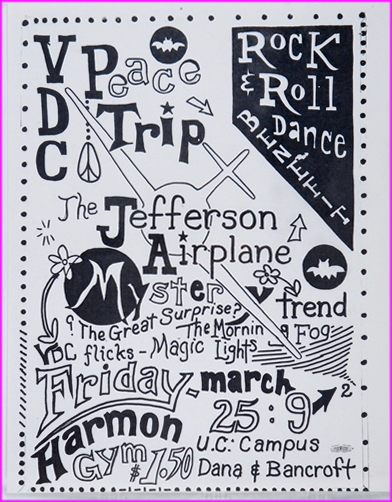 VDC Peace Trip
Rock & Roll Dance
BENEFIT
The Jefferson Airplane
Mystery trend
? The Great Surprise? The Mornin g Fog
VDC flicks - Magic Lights
Friday. march
25:9 → 2
Harmon Gym $1.50
U.C. Campus
Dana & Bancroft